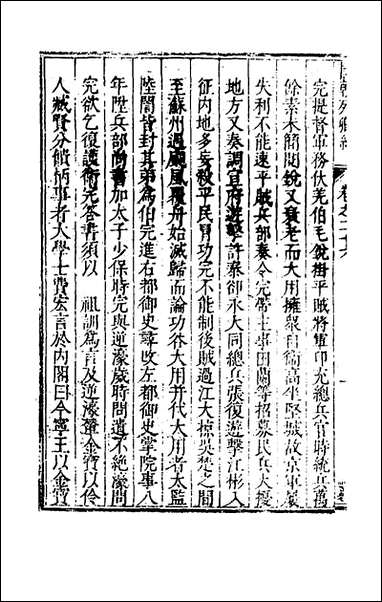 完提督軍務伏羌伯毛銳掛平賊將軍印充總兵官時統兵萬
餘素未簡閱銳又衰老而大用擁衆自衞高坐堅城故京軍屢
失利不能速平賊兵部奏令完帶主事田蘭等招募民兵大擾
地方又奏調宣府遊擊許泰卻永大同總兵張復遊擊江彬入
征内地多妄殺平民冒功完不能制後賊過江大掠吳楚之間
至蘇州遇颶風覆舟始滅歸而論功谷大用并代大用者太監
陸誾皆封其弟爲伯完進右都御史尋改左都御史掌院事八
年陞兵部尚書加太子少保時完與逆濠歲時問遺不絶濠問
完欲乞復護衞完答書須以 祖訓爲言及逆濠輦金寶以伶
人臧賢分饋柄事者大學士費宏言於内閣曰今寧王以金寶